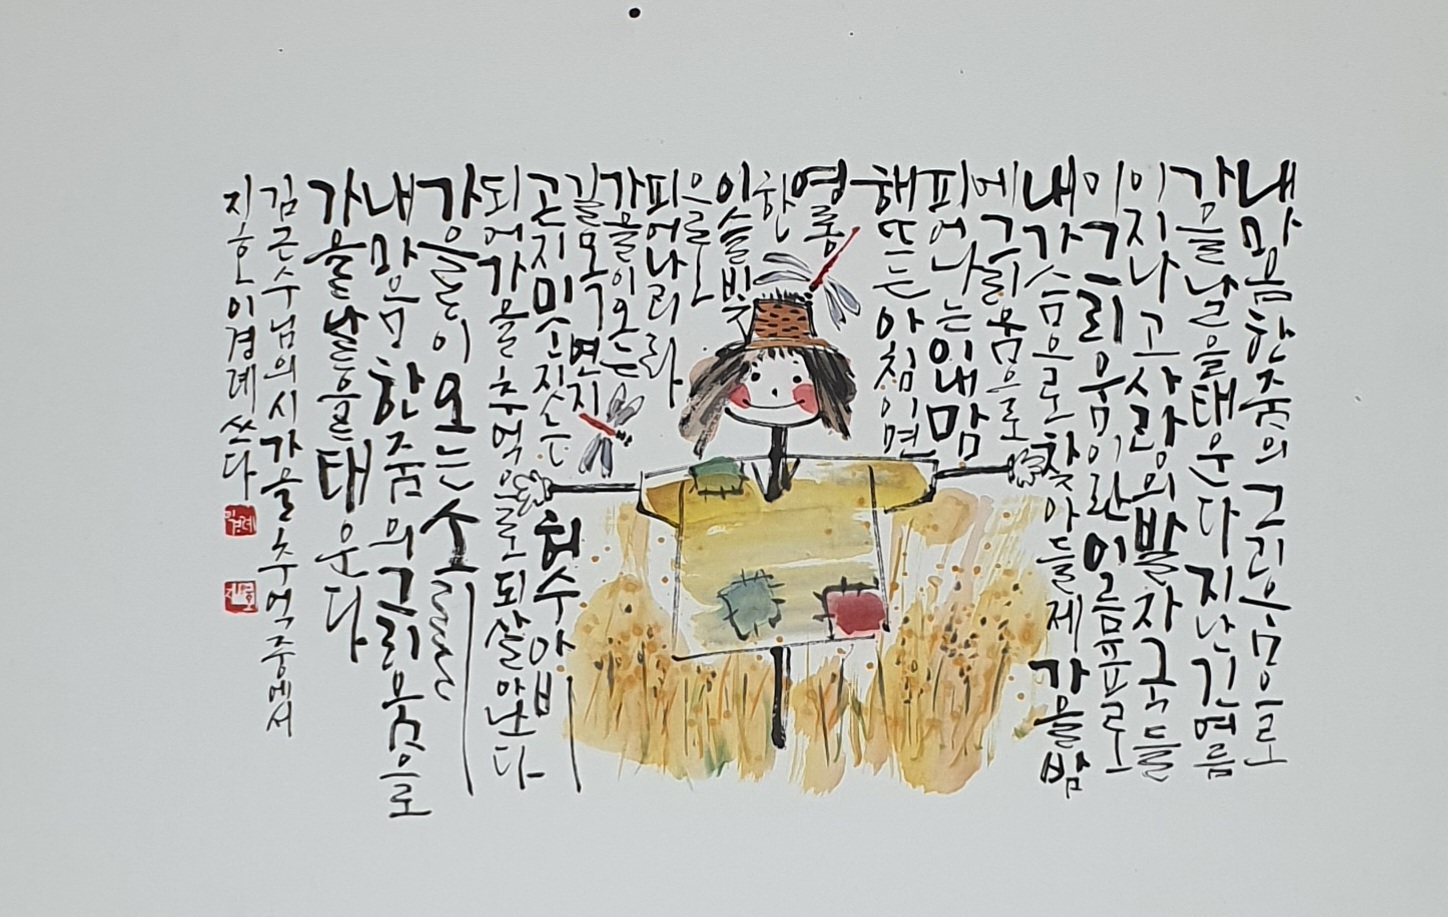 내 마음 한 줌의 그리움으로
가을날을 태운다 지난 긴 여름
이 지나고 사랑의 발자국들
이 그리움이란 이름표로
내 가슴으로 찾아들 제 가을밤
에 그리움으로
피어나는 이내 맘
해 뜨는 아침이면
영롱
한
이슬빛
으로
피어나리라
가을이 오는
길목 연지
곤지 미소 짓는 허수아비
되어 가을 추억으로 되살아난다
가을이 오는 소리를
내 마음 한 줌의 그리움으로
가을날을 태운다
김근수님의 시 가을 추억 중에서
지호 이경례 쓰다